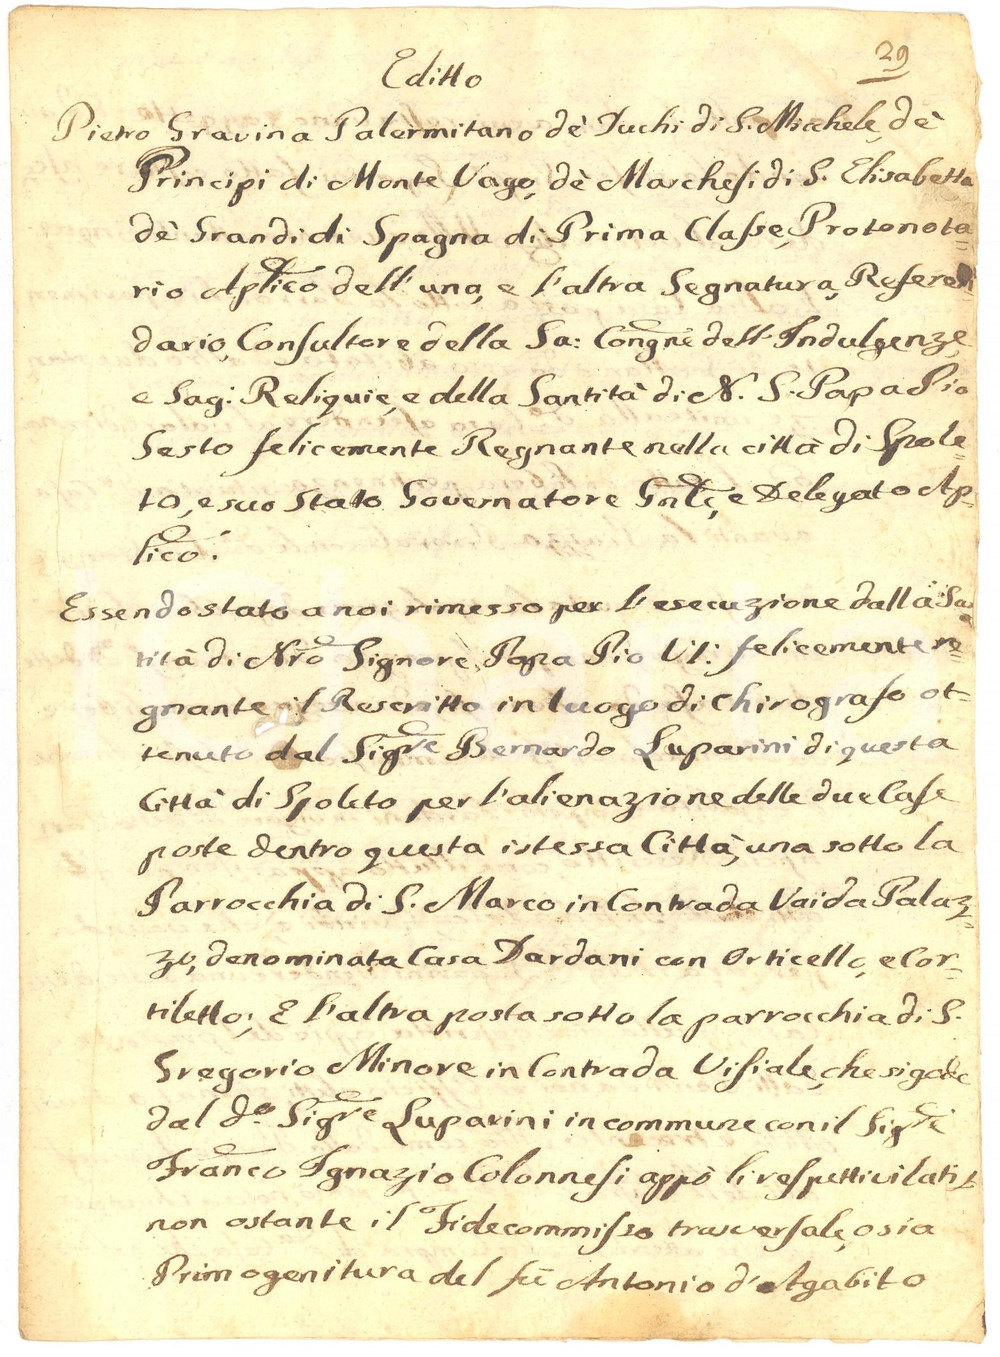 29
Editto
Pietro Gravina Palermitano dè Duchi di S. Michele, dè
Principi di Monte Vago, dè Marchesi di S. Elisabetta
dè Grandi di Spagna di Prima Classe, Protonota=
rio Aplico dell'una, e l'altra Segnatura, Referen
dario, Consultore della Sa: Congne dell'Indulgenze,
e Sag: Reliquie, e della Santità di N. S. Papa Pio
Sesto felicemente Regnante nella città di Spole=
to, e suo Stato Governatore Gnle, e Delegato Ap=
lico.
Essendo stato a noi rimesso per l'esecuzione dalla San
tità di Nro Signore Papa Pio VI: felicemente re=
gnante il Rescritto in luogo di Chirografo ot=
tenuto dal Sigre Bernardo Luparini di questa
Città di Spoleto per l'alienazione delle due Case
poste dentro questa istessa Città, una sotto la
Parrocchia di S. Marco in Contrada Vaida Palaz=
zo, denominata Casa Dardani con Orticello, e Cor=
tiletto; E l'altra posta sotto la parrocchia di S.
Gregorio Minore in Contrada Visiale, che si gode
dal do. Sigre Luparini in commune con il Sigre
Franco Ignazio Colonnesi appò li respettivi lati,
non ostante il Fidecommisso trasversale, o sia
Primogenitura del fù Antonio d'Agabito